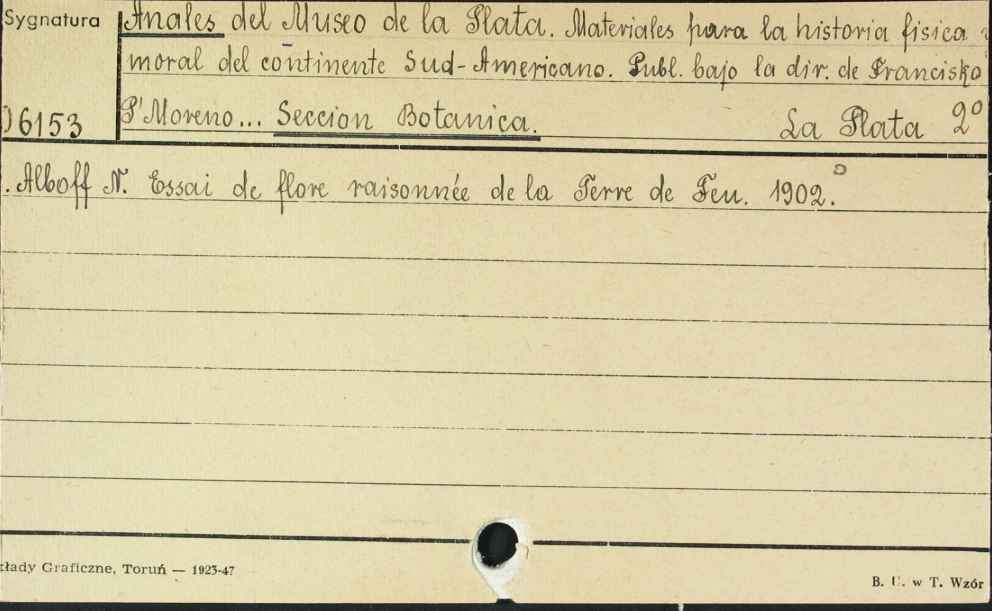 Sygnatura
Anales del Museo de la Plata. Materiales para la historia fisica
moral del continente Sud-Americano. Publ. bajo la dir. de Francisko
06153
P' Moreno... Seccion Botanica. La Plata 2°
. Alboff N. Essai de flore raisonnée de la Terre de Feu. 1902.
kłady Graficzne, Toruń — 1923-47
B. U. w T. Wzór